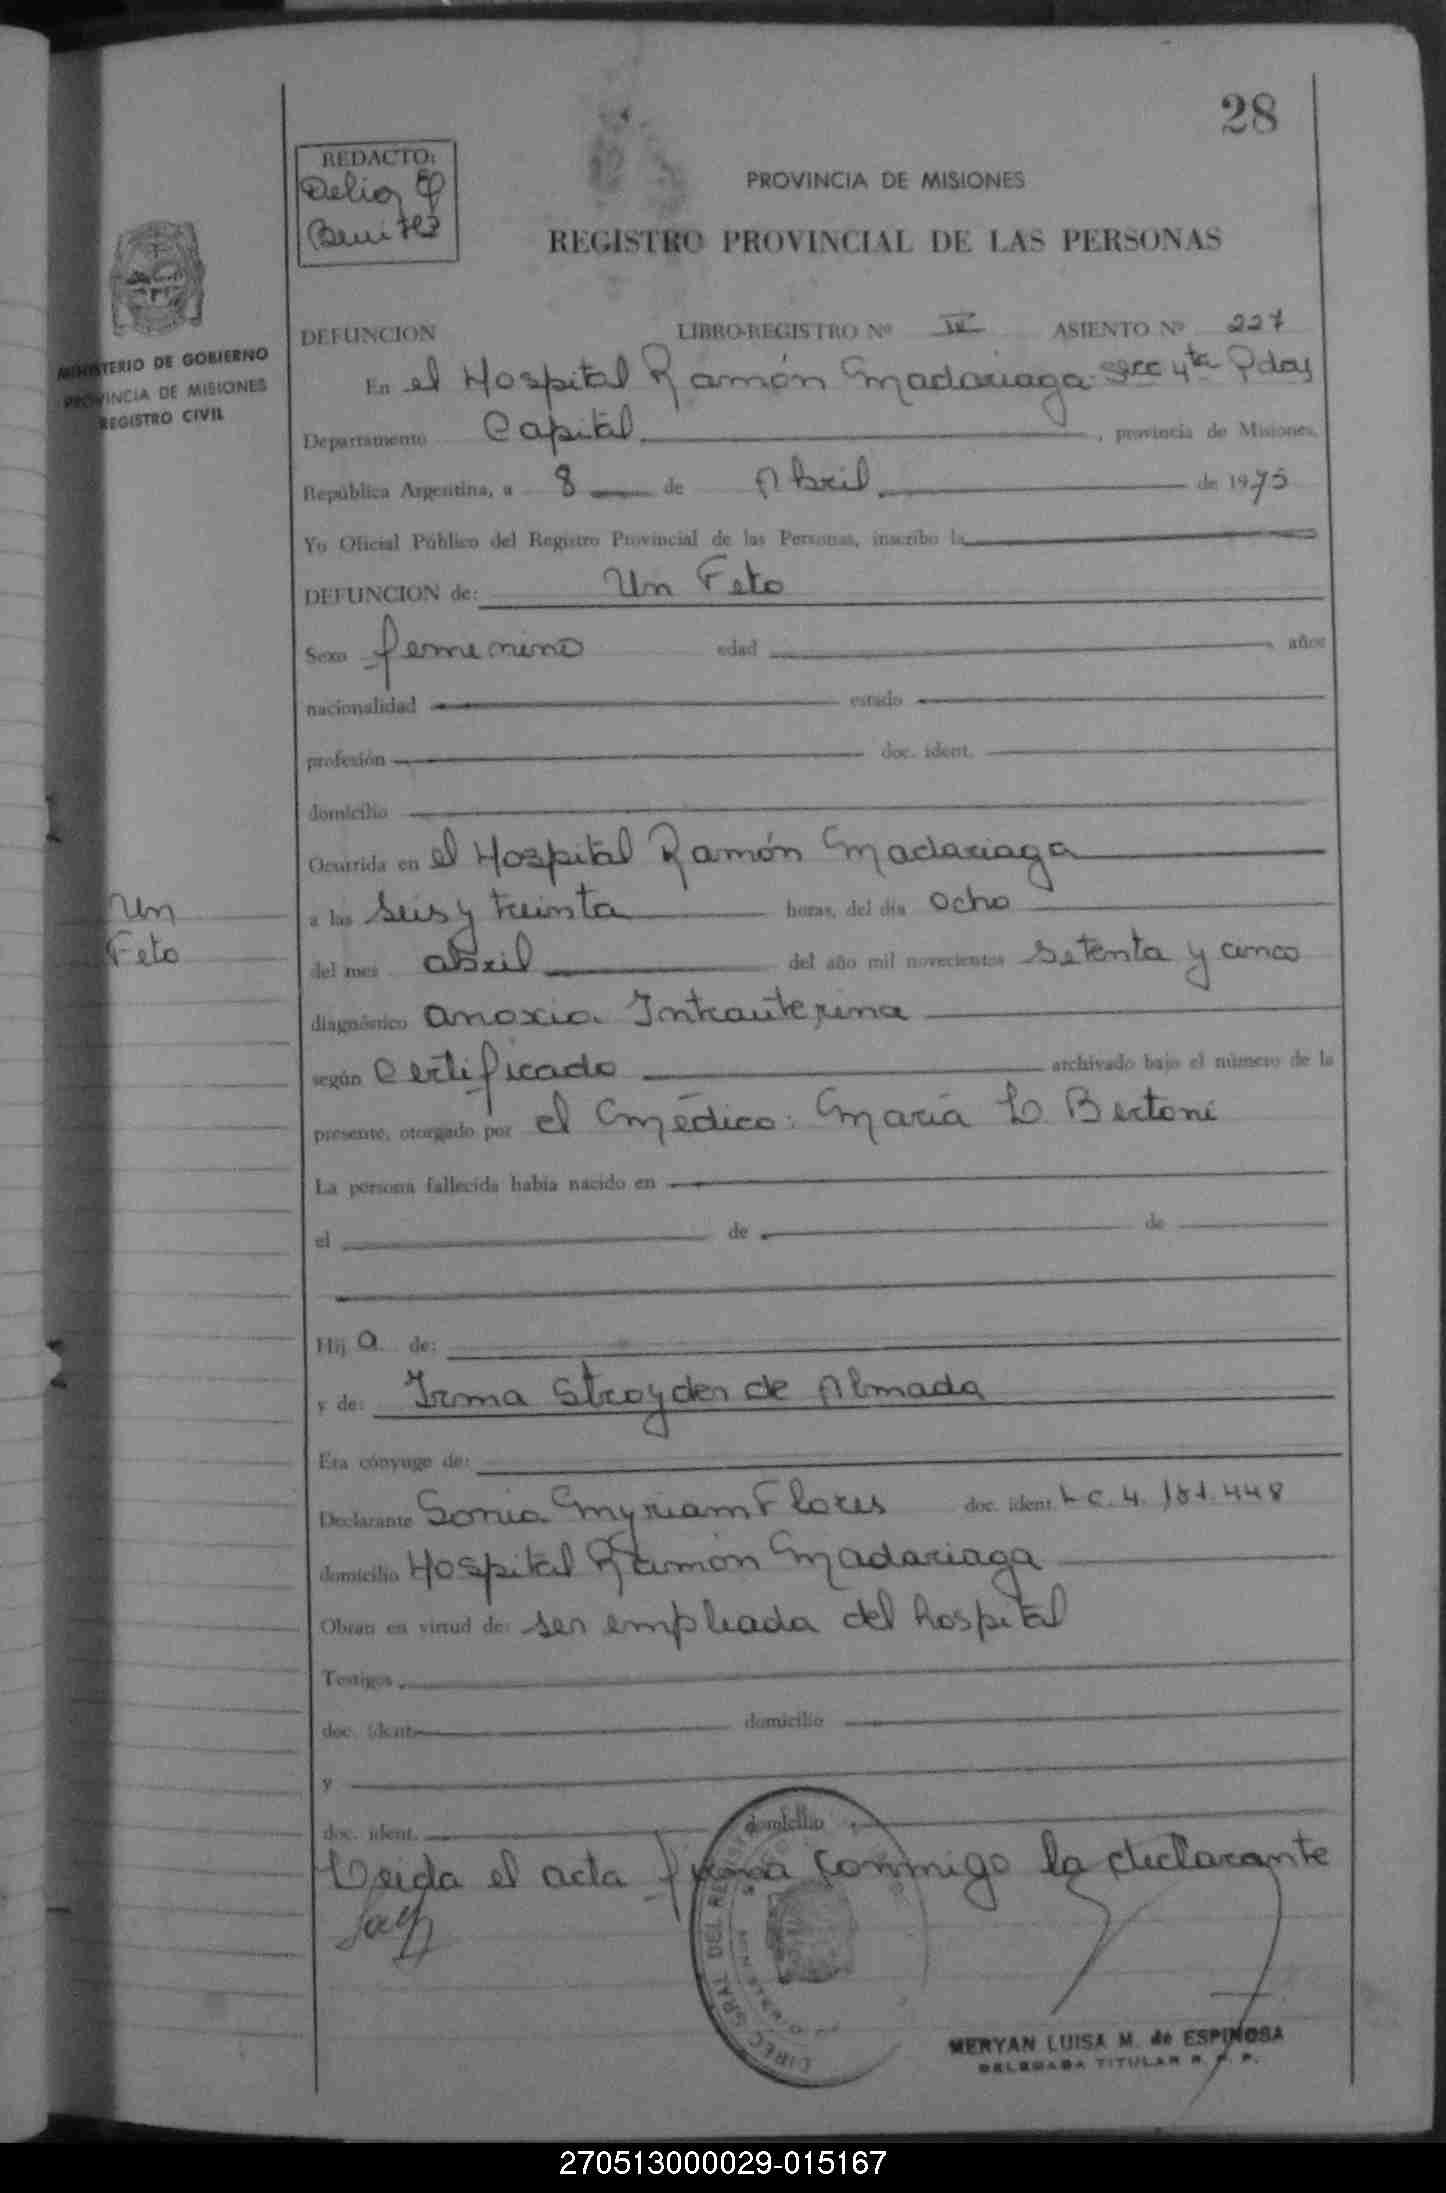 28
REDACTO:
Delia
Benitez
PROVINCIA DE MISIONES
REGISTRO PROVINCIAL DE LAS PERSONAS
MINISTERIO DE GOBIERNO
PROVINCIA DE MISIONES
REGISTRO CIVIL
DEFUNCION LIBRO-REGISTRO Nº IV ASIENTO Nº 227
En el Hospital Ramón Madariaga secc 4ta Pdas
Departamento Capital, provincia de Misiones,
República Argentina, a 8 de Abril de 1975
Yo Oficial Público del Registro Provincial de las Personas, inscribo la
DEFUNCION de: Un Feto
Sexo femenino edad años
nacionalidad estado
profesión doc. ident.
domicilio
Ocurrida en el Hospital Ramón Madariaga
Un
Feto
a las seis y treinta horas, del día ocho
del mes abril del año mil novecientos setenta y cinco
diagnóstico anoxia Intrauterina
según Certificado archivado bajo el número de la
presente, otorgado por el médico: María L. Bertoni
La persona fallecida había nacido en
el de de
Hija de:
y de: Irma Stroyder de Almada
Era cónyuge de:
Declarante Sonia Myriam Flores doc. ident. L C. 4.181.448
domicilio Hospital Ramón Madariaga
Obran en virtud de: ser empleada del hospital
Testigos
doc. ident. domicilio
y
doc. ident. domicilio
Leida el acta firma conmigo la declarante
MERYAN LUISA M. de ESPINOSA
DELEGADA TITULAR R. P. P.
270513000029-015167